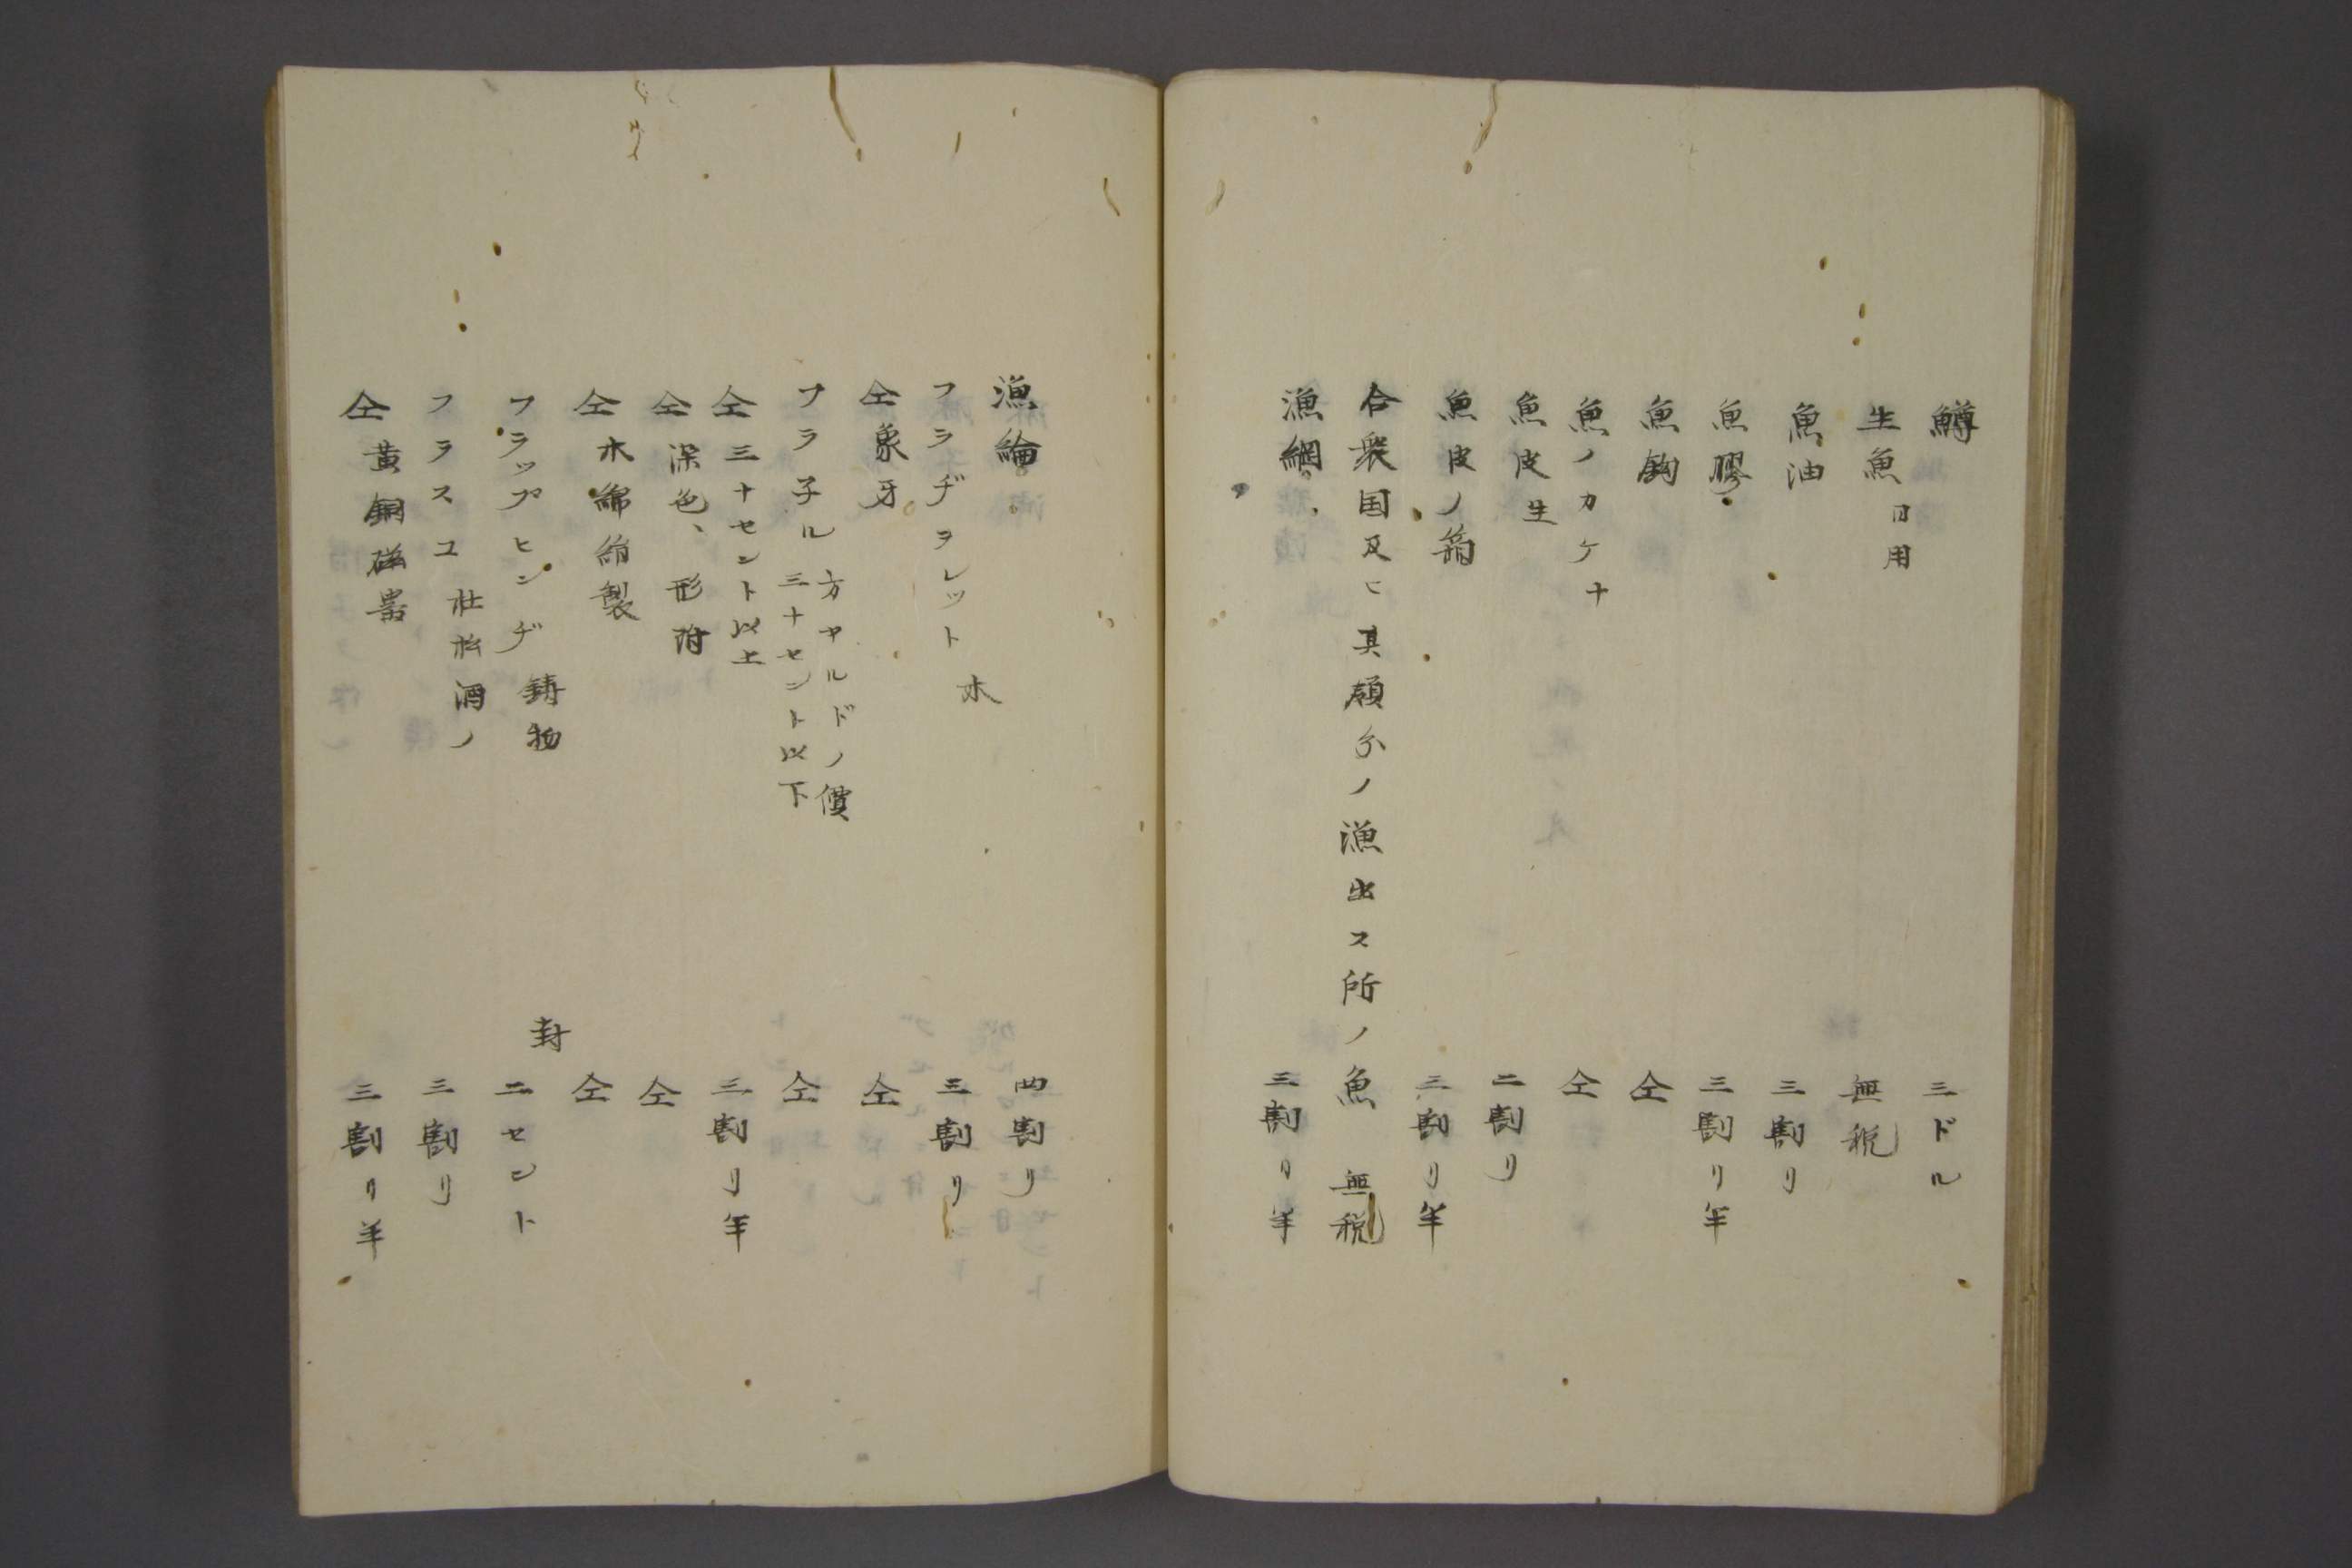 鱒 三ドル
生魚 日用 無税
魚油 三割リ
魚膠 三割リ半
魚鈎 仝
魚ノカケナ 仝
魚皮 生 二割リ
魚皮ノ箱 三割リ半
合衆国及ヒ其領分ノ漁出ス所ノ魚 無税
漁網 三割リ半
漁綸 四割リ
フラヂヲレット 木 三割リ
仝 象牙 仝
フラ子ル 方ヤルドノ價三十セント以下 仝
仝 三十セント以上 三割リ半
仝 深色、形附 仝
仝 木綿絹製 仝
フラップヒンヂ 鋳物 封 二セント
フラスコ 杜松酒ノ 三割リ
仝 黄銅磁器 三割リ半